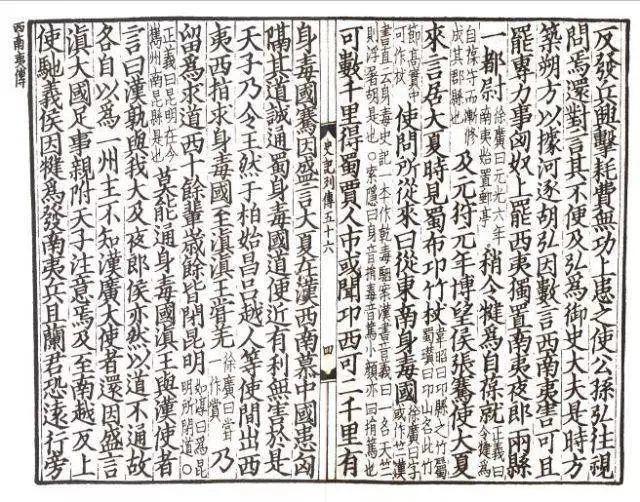 反發兵興擊耗費無功上患之使公孫弘往視
問焉還對言其不便及弘為御史大夫是時方
築朔方以據河逐胡弘因數言西南夷害可且
罷專力事匈奴上罷西夷獨置南夷夜郎兩縣
一都尉徐廣曰元光六年南夷始置郵亭稍令犍為自葆就正義曰令犍為
自葆守而漸修成其郡縣也及元狩元年博望侯張騫使大夏
來言居大夏時見蜀布卭竹杖韋昭曰卭縣之竹屬蜀瓚曰卭山名此竹
節高實中可作杖使問所從來曰從東南身毒國徐廣曰字或作竺漢
書直云身毒史記一本作乾毒駰案漢書音義曰一名天竺則浮屠胡是也○索隱曰身音捐毒音篤小顏亦曰捐篤也
可數千里得蜀賈人市或聞卭西可二千里有
史記列傳五十六 四
身毒國騫因盛言大夏在漢西南慕中國患匈
隔其道誠通蜀身毒國道便近有利無害於是
天子乃令王然于柏始昌呂越人等使間出西
夷西指求身毒國至滇滇王嘗羌徐廣曰嘗一作賞乃
留為求道西十餘輩歲餘皆閉昆明如淳曰為昆明所閉道○
正義曰昆明在今嶲州南昆縣是也莫能通身毒國滇王與漢使者
言曰漢孰與我大及夜郎侯亦然以道不通故
各自以為一州主不知漢廣大使者還因盛言
滇大國足事親附天子注意焉及至南越反上
使馳義侯因犍為發南夷兵且蘭君恐遠行旁
西南夷傳